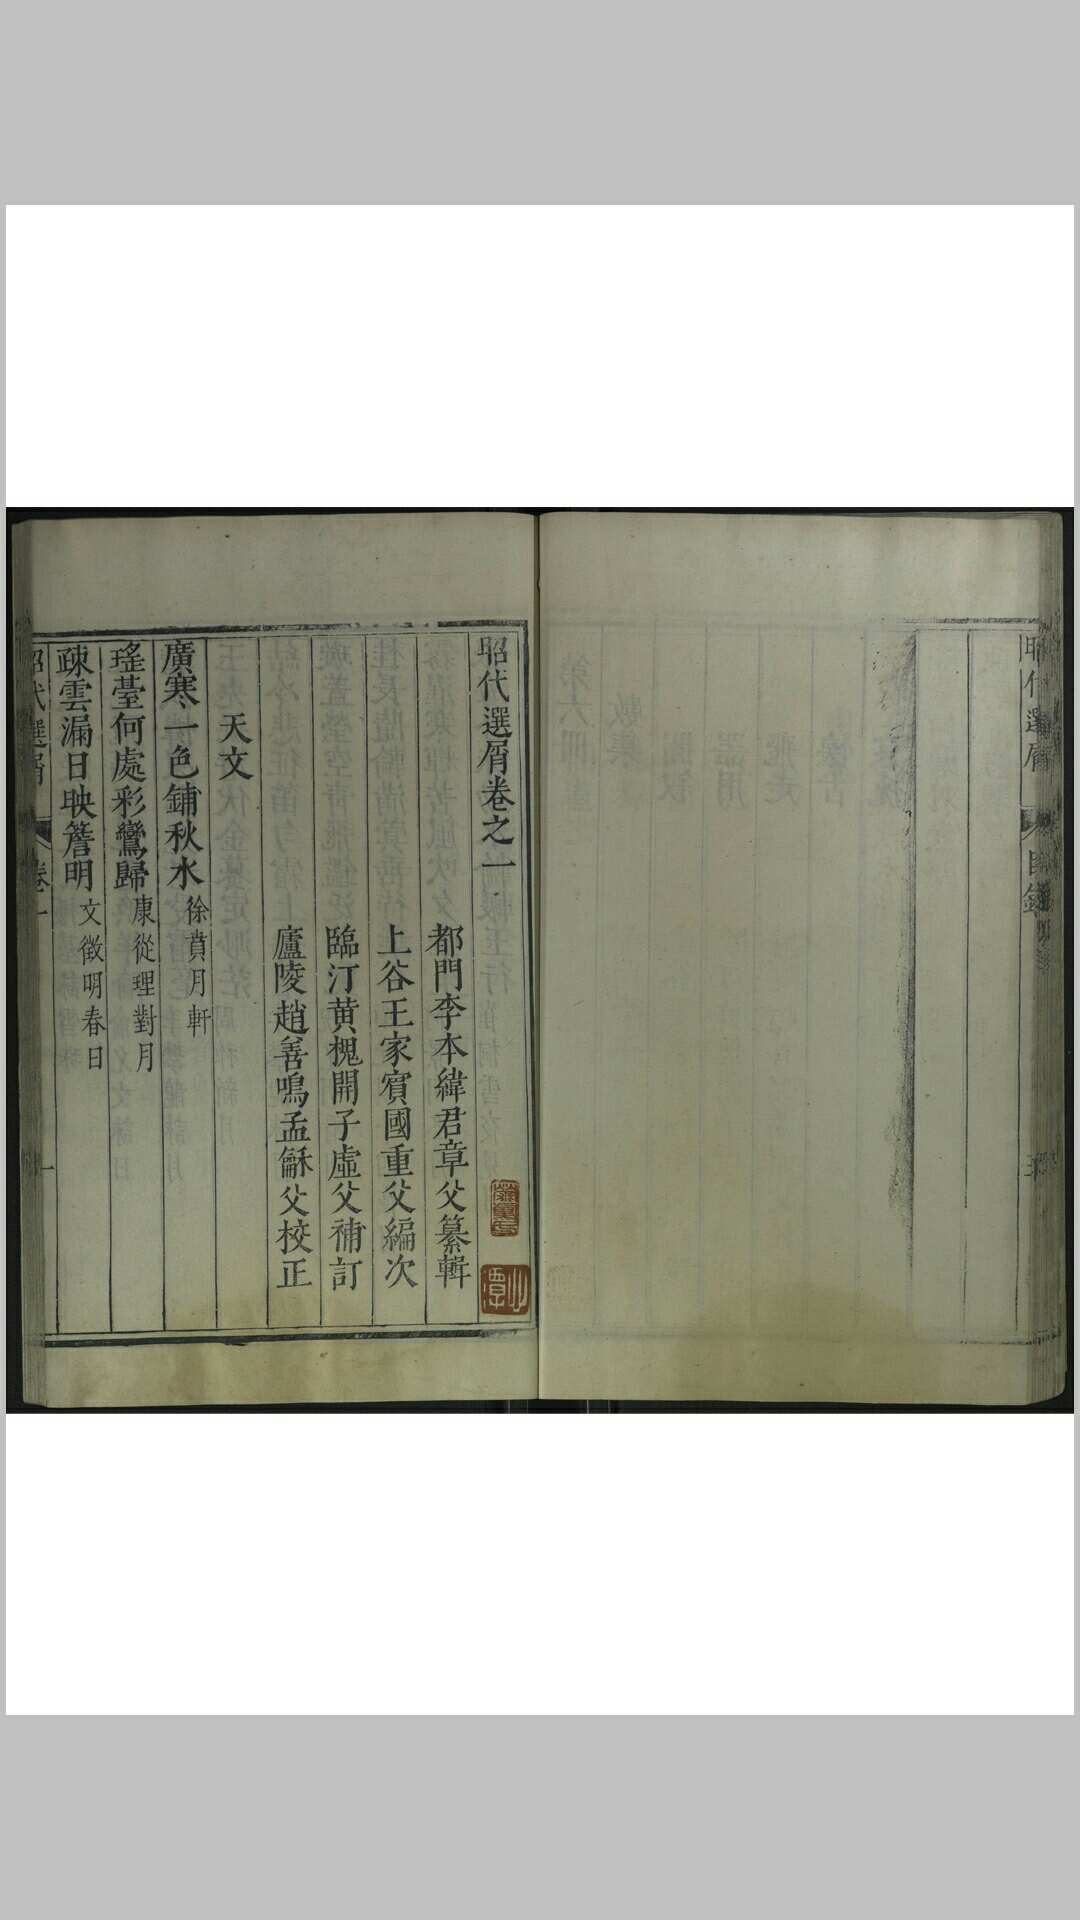 昭代選屑
目錄
昭代選屑卷之一
都門李本緯君章父纂輯
上谷王家賓國重父編次
臨汀黃槐開子虛父補訂
廬陵趙善鳴孟龢父校正
天文
廣寒一色鋪秋水 徐賁月軒
瑤臺何處彩鸞歸 康從理對月
疎雲漏日映簷明 文徵明春日
昭代選屑
卷一
一